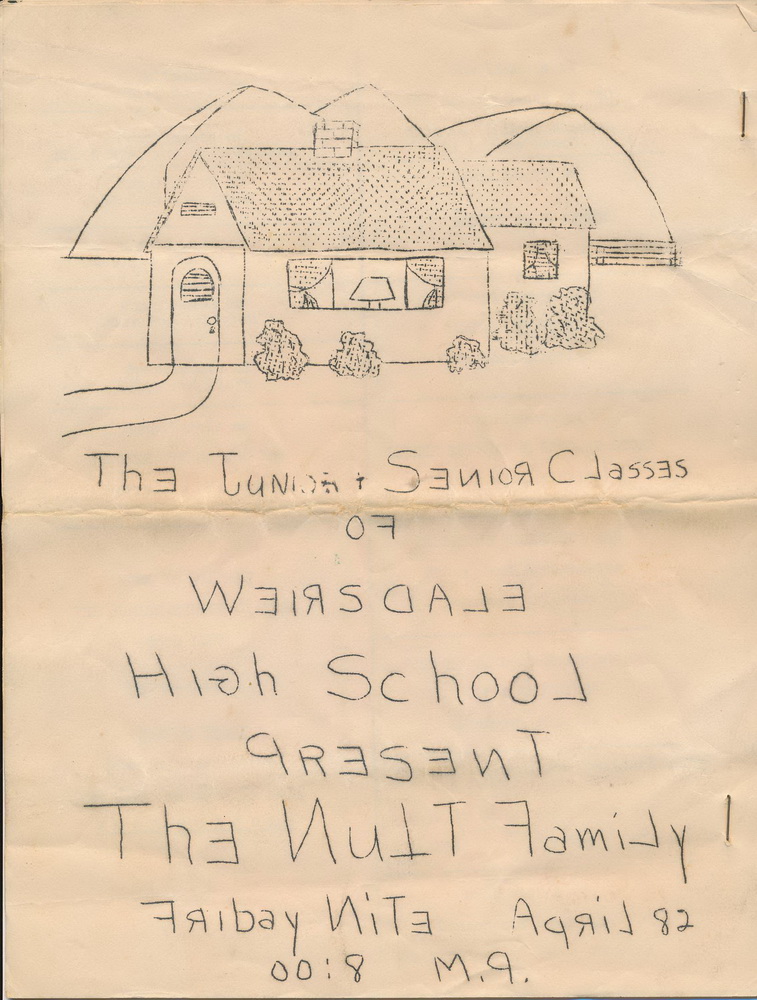 The Junior & Senior Classes
OF
WEIRSDALE
High School
PRESENT
The NulT Family
Friday NiTe April 82
00:8 M.P.